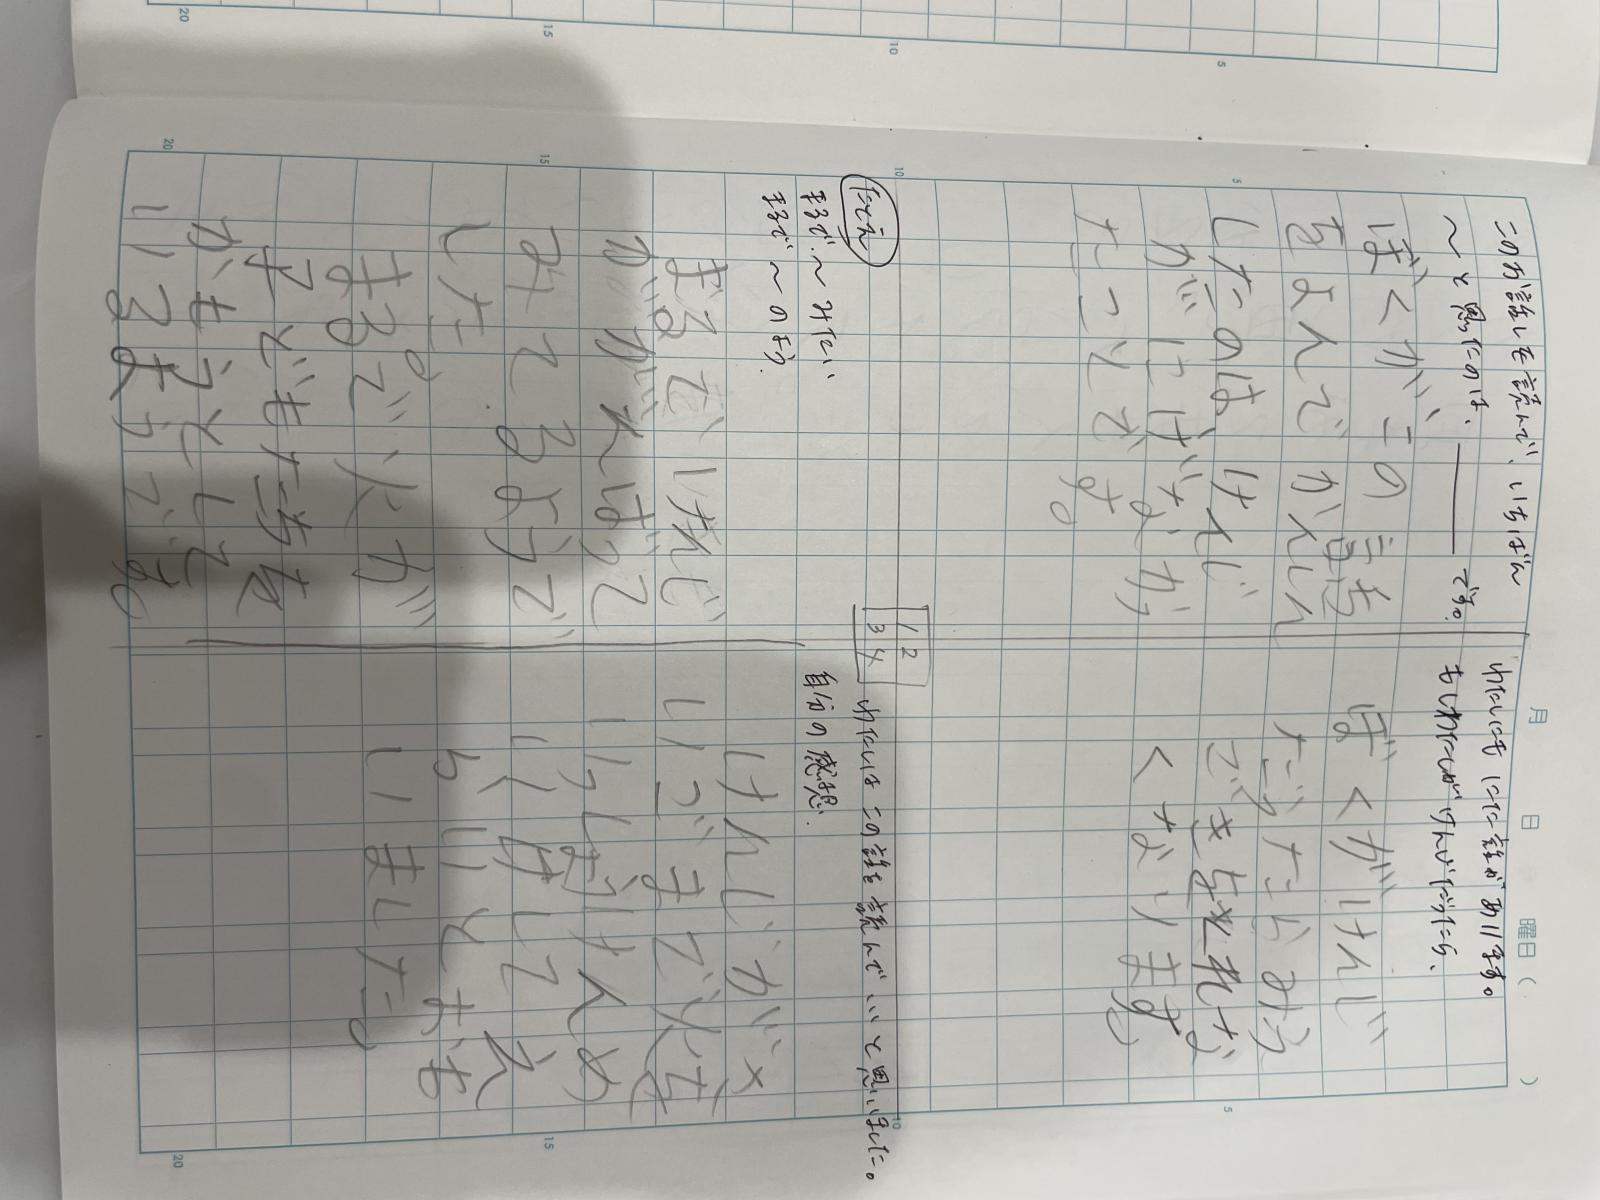 月 日 曜日( )
このお話しを読んで、いちばん
〜と思ったのは、――です。
ぼくが、この話
をよんでかんしん
したのは、けんじ
がにげなか
たことです。
わたしにもにた話があります。
もしわたしがけんじだったら、
ぼくがけんじ
だったらみう
ごきをとれな
くなります。
1 2
3 4
たとえ
まるで〜みたい
まるで〜のよう
まるで、けんじ
が、がんばって
みてるようで
した。
まるで、火が
子どもたちを
かもうとして
いるようです。
わたしはこの話を読んで…と思いました。
自分の感想
けんじが×
いつまで火を
いっしょうけんめ
いけして、え
らいとおも
いました。
5
10
15
20
5
10
15
20
5
10
15
20